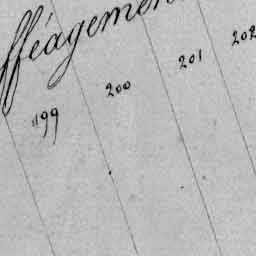 fféagement
199 200 201 202